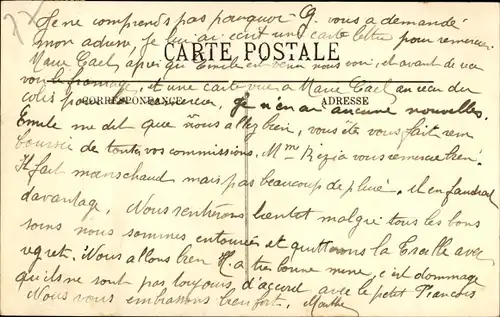 Je ne comprends pas pourquoi G. vous a demandé
mon adresse, je lui ai écrit une carte lettre pour remercier
CARTE POSTALE
Marie Gael après qu'Emile est venu nous voir, et avant de rece
voir le fromage, et une carte vue à Marie Gael au reçu du
colis pour la remercier, je n'en ai aucune nouvelles.
CORRESPONDANCE
ADRESSE
Emile me dit que vous allez bien, vous êtes vous fait rem
boursée de toutes vos commissions, Mme vous remercie bien.
Il fait moins chaud mais pas beaucoup de pluie, il en faudrait
davantage. Nous rentrerons bientot malgré tous les bons
soins nous sommes entourées et quitterons la Treille avec
regret. Nous allons bien H. a très bonne mine, c'est dommage
qu'ils ne sont pas toujours d'accord avec le petit François
Nous vous embrassons bien fort, Marthe